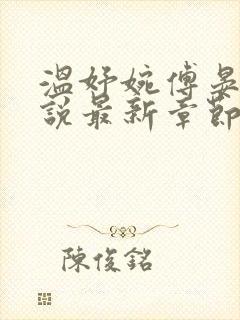 溫妤婉傅晏
說最新章節
陳俊銘